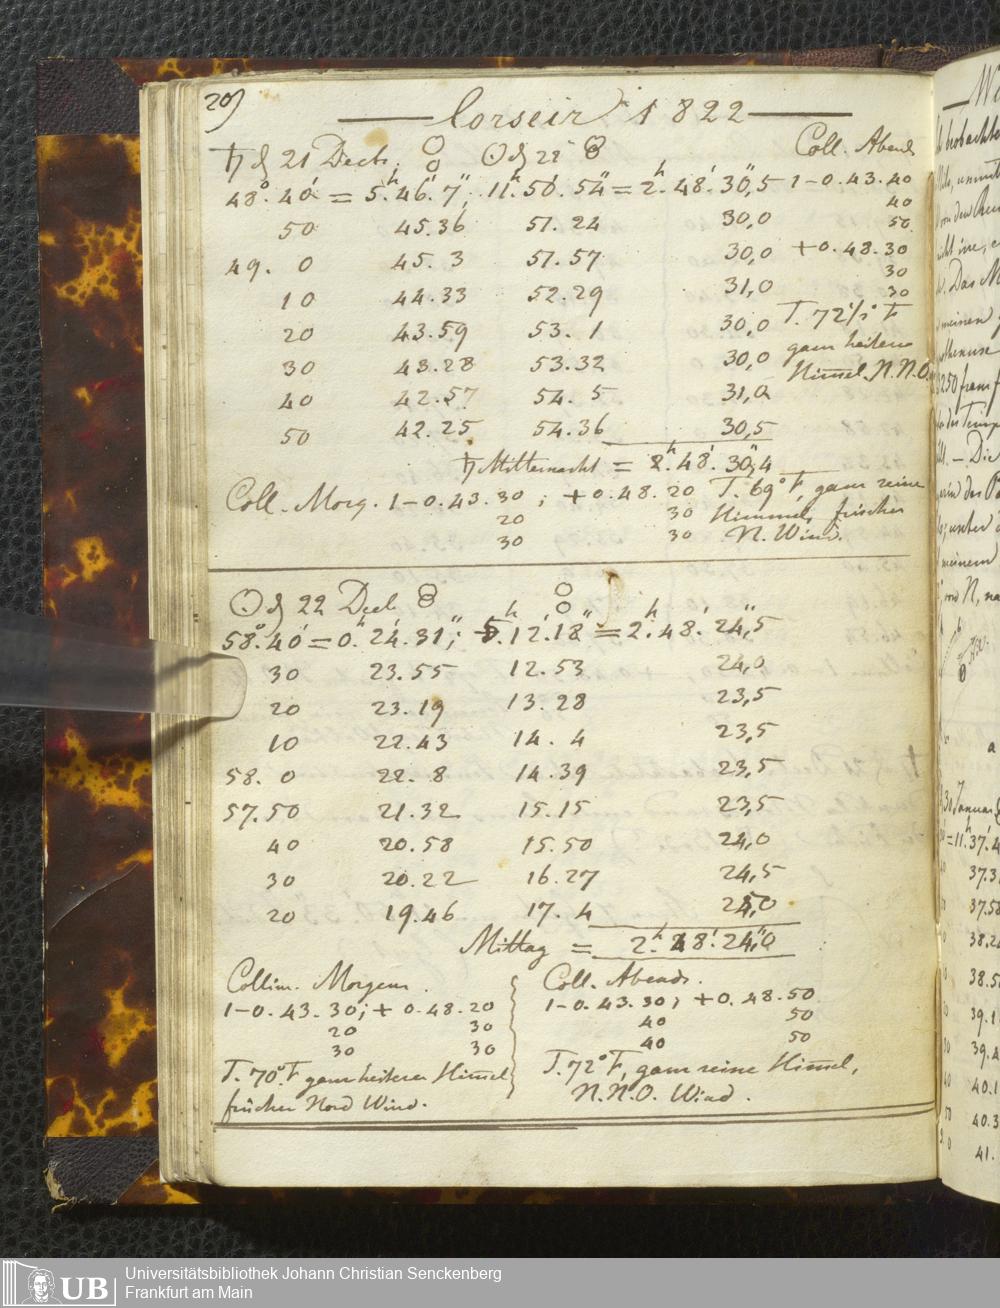 20)
Corseir 1822
♄ d 21 Decb. ☉ d 22 Coll. Abend
48°. 40' = 5h. 46'. 7"; 11h. 50'. 54" = 2h. 48'. 30",5 1-0.43.40
40
50 45.36 51.24 30,0 50
49. 0 45. 3 51.57 30,0 +0.48.30
30
10 44.33 52.29 31,0 30
20 43.59 53. 1 30,0 T. 72 1/2 F
30 43.28 53.32 30,0 ganz heiterer
40 42.57 54. 5 31,0 Him̅el. N.N.O.
50 42.25 54.36 30,5
♄ Mitternacht = 2h. 48'. 30",4
Coll. Morg. 1-0.43.30; +0.48.20 T. 69° F, ganz reine
20 30 Himmel, frischer
30 30 N. Wind.
☉ d 22 Decb.
58°. 40' = 0h. 24'. 31"; 5h. 12'. 18" = 2h. 48'. 24",5
30 23.55 12.53 24,0
20 23.19 13.28 23,5
10 22.43 14. 4 23,5
58. 0 22. 8 14.39 23,5
57.50 21.32 15.15 23,5
40 20.58 15.50 24,0
30 20.22 16.27 24,5
20 19.46 17. 4 25,0
Mittag = 2h. 48'. 24",0
Collim. Morgens.
1-0.43.30; +0.48.20
20 30
30 30
T. 70° F ganz heiterer Him̅el
frischer Nord Wind.
Coll. Abends.
1-0.43.30; +0.48.50
40 50
40 50
T. 72° F, ganz reine Him̅el,
N.N.O. Wind.
UB
Universitätsbibliothek Johann Christian Senckenberg
Frankfurt am Main